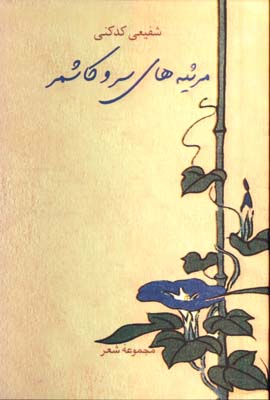 شفیعی کدکنی
مرثیه‌های سرو کاشمر
مجموعهٔ شعر